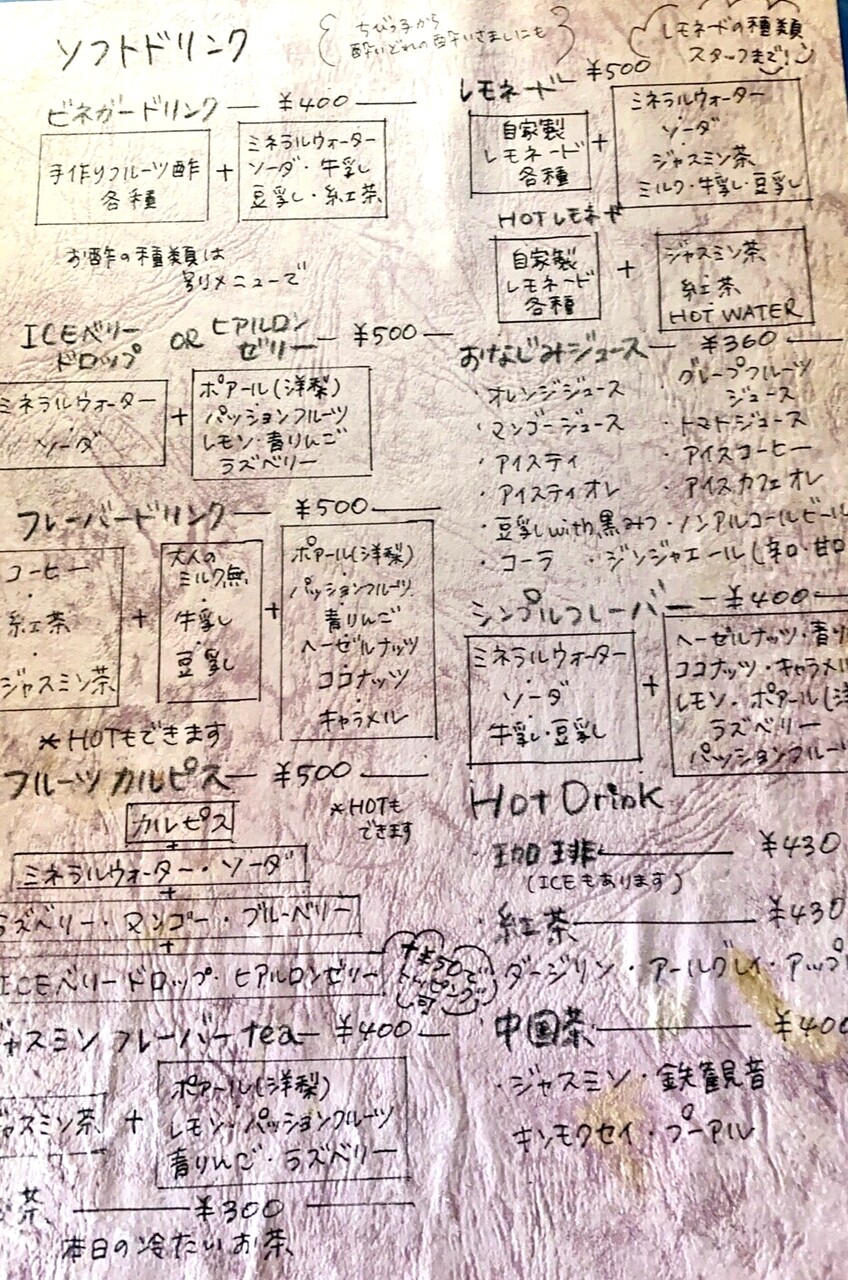 ソフトドリンク
ちびっ子から
酔いどれの酔いざましにも
ビネガードリンク ¥400
手作りフルーツ酢
各種
+
ミネラルウォーター
ソーダ・牛乳
豆乳・紅茶
お酢の種類は
別メニューで
ICEベリー
ドロップ
OR
ヒアルロン
ゼリー
¥500
ミネラルウォーター
・
ソーダ
+
ポアール(洋梨)
パッションフルーツ
レモン・青りんご
ラズベリー
フレーバードリンク ¥500
コーヒー
・
紅茶
・
ジャスミン茶
+
大人の
ミルク無
・
牛乳
・
豆乳
+
ポアール(洋梨)
・
パッションフルーツ
・
青りんご
・
ヘーゼルナッツ
・
ココナッツ
・
キャラメル
*HOTもできます
フルーツカルピス ¥500
*HOTも
できます
カルピス
+
ミネラルウォーター・ソーダ
+
ラズベリー・マンゴー・ブルーベリー
+
ICEベリードロップ・ヒアルロンゼリー
+¥50で
トッピング
可
ャスミンフレーバーtea ¥400
ャスミン茶
+
ポアール(洋梨)
レモン・パッションフルーツ
青りんご・ラズベリー
茶 ¥300
本日の冷たいお茶
レモネードの種類
スタッフまで!
レモネード ¥500
自家製
レモネード
各種
+
ミネラルウォーター
・
ソーダ
・
ジャスミン茶
・
ミルク・牛乳・豆乳
HOTレモネード
自家製
レモネード
各種
+
ジャスミン茶
・
紅茶
・
HOT WATER
おなじみジュース ¥360
・オレンジジュース
・グレープフルーツ
ジュース
・マンゴージュース ・トマトジュース
・アイスティ ・アイスコーヒー
・アイスティオレ ・アイスカフェオレ
・豆乳with黒みつ・ノンアルコールビール
・コーラ ・ジンジャエール(辛口・甘口
シンプルフレーバー ¥400
ミネラルウォーター
・
ソーダ
・
牛乳・豆乳
+
ヘーゼルナッツ・青り
ココナッツ・キャラメル
レモン・ポアール(洋
ラズベリー
パッションフルーツ
Hot Drink
・珈琲 ¥430
(ICEもあります)
・紅茶 ¥430
ダージリン・アールグレイ・アップル
・中国茶 ¥400
・ジャスミン・鉄観音
キンモクセイ・プーアル